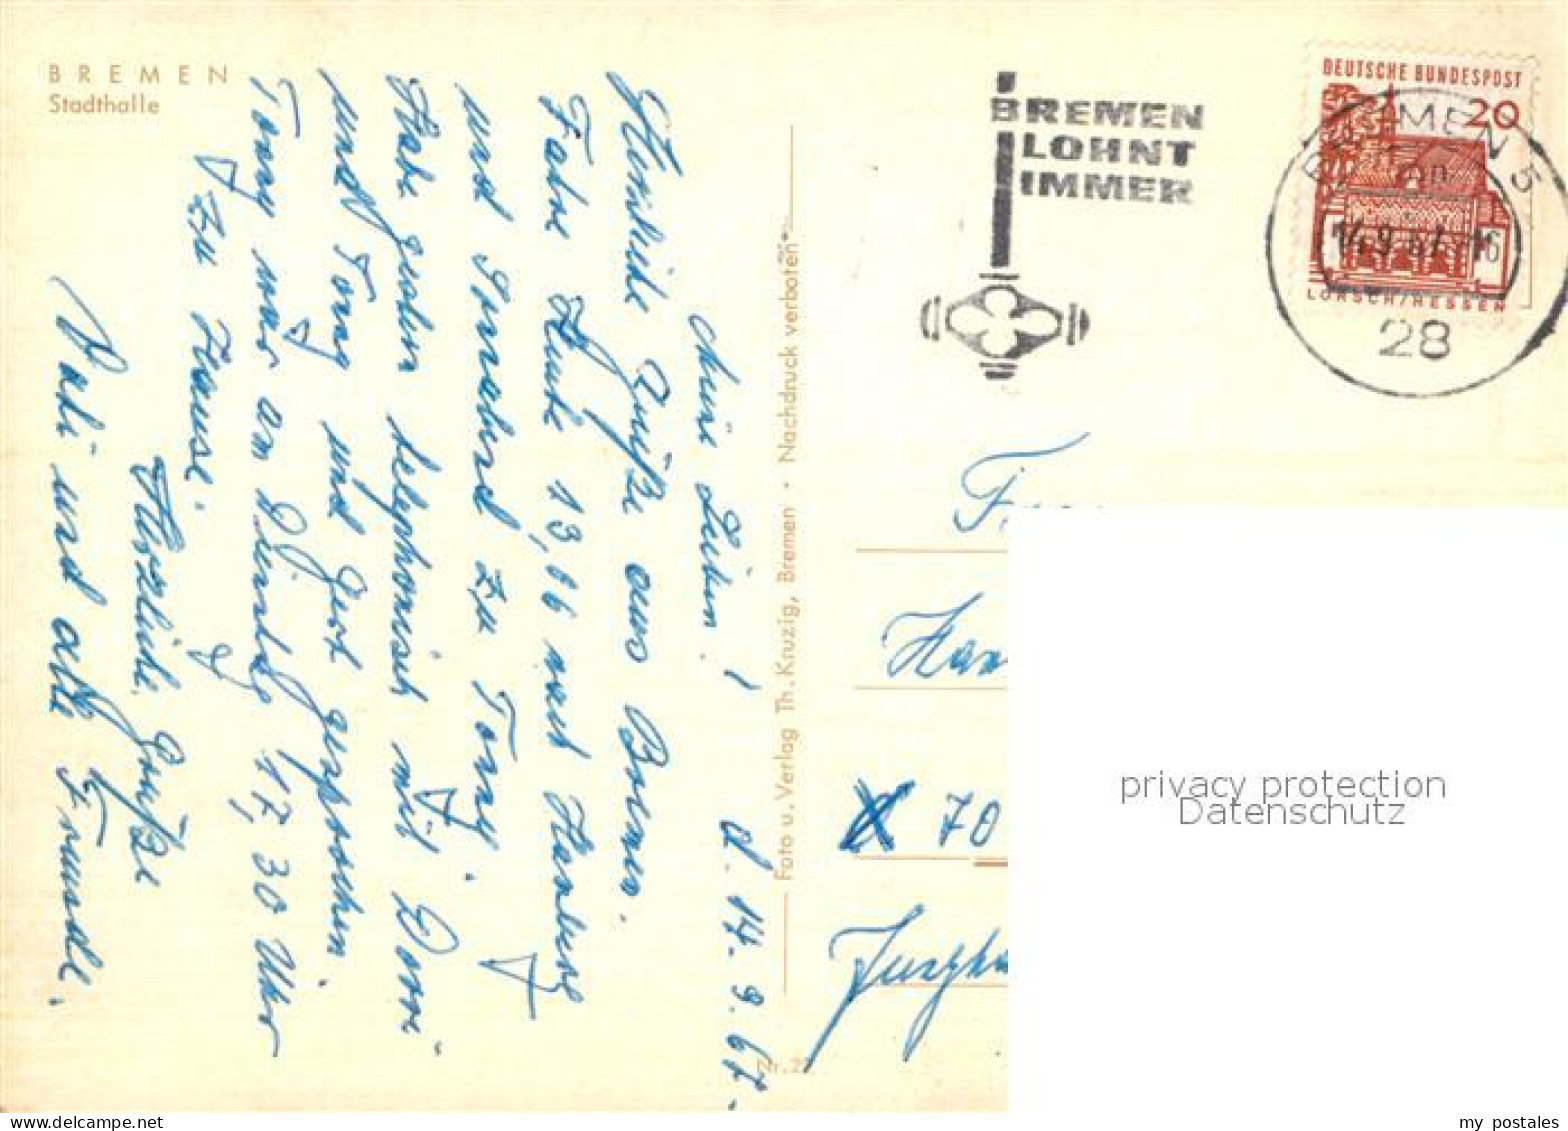 BREMEN
Stadthalle
BREMEN
LOHNT
IMMER
DEUTSCHE BUNDESPOST
20
LORSCH/HESSEN
BREMEN 5
14.9.67-16
28
Meine Lieben! d. 14.9.67.
Herzliche Grüße aus Bremen.
Fahre Heute 13,06 nach Hamburg
und Sonnabend zu Tony.
Habe gestern telephonisch mit Dori
und Tony und Gert gesprochen.
Tony war am Dienstag 17,30 Uhr
zu Hause.
Herzliche Grüße
Vati und alle Freunde.
Foto u. Verlag Th. Kruzig, Bremen · Nachdruck verboten
Nr. 2
70
privacy protection
Datenschutz
my postales